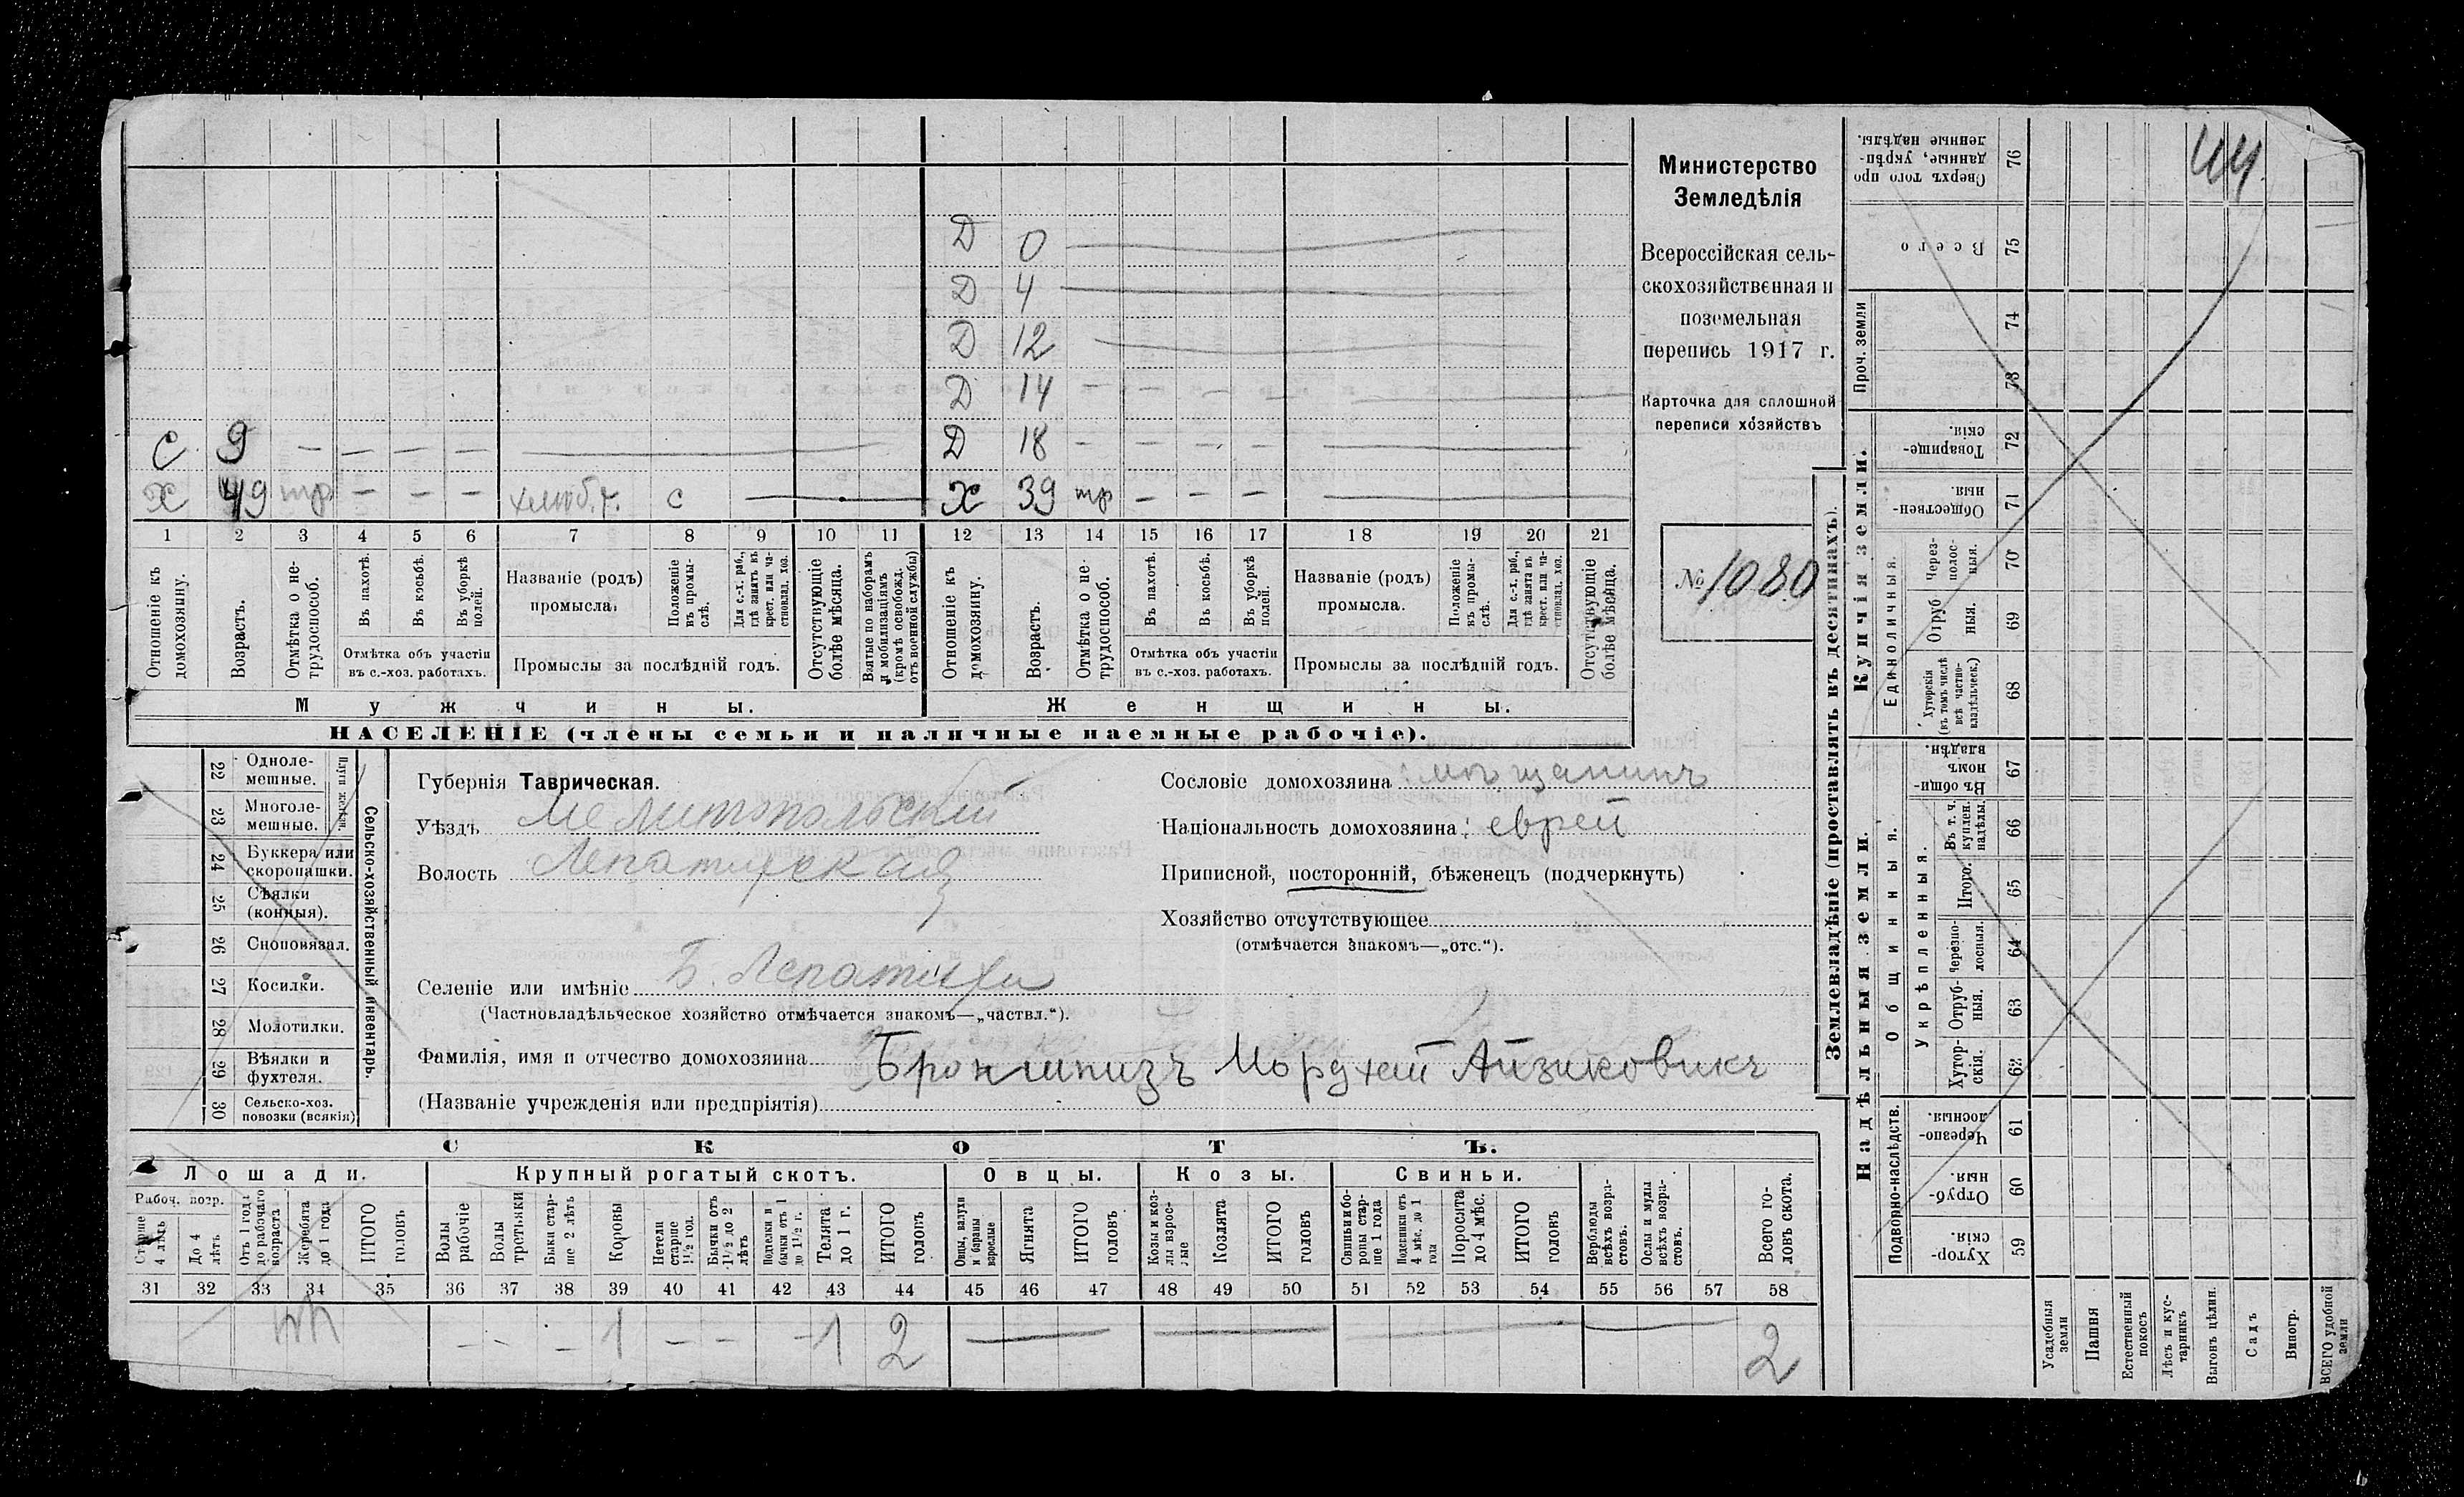 Министерство
Земледѣлія
Всероссійская сель-
скохозяйственная и
поземельная
перепись 1917 г.
Карточка для сплошной
переписи хозяйствъ
№ 1080
44
Д 0
Д 4
Д 12
Д 14 — — — —
С 9 — — — — — Д 18 — — — — —
Х 49 тр — — — с — Х 39 тр — — — —
1 2 3 4 5 6 7 8 9 10 11 12 13 14 15 16 17 18 19 20 21
Отношеніе къ домохозяину.
Возрастъ.
Отмѣтка о не-трудоспособ.
Въ пахотѣ.
Въ косьбѣ.
Въ уборкѣ полей.
Отмѣтка объ участіи
въ с.-хоз. работахъ.
Названіе (родъ)
промысла.
Положеніе въ промы-слѣ.
Для с.-х. раб., гдѣ занятъ въ крест. или ча-стновлад. хоз.
Промыслы за послѣдній годъ.
Отсутствующіе болѣе мѣсяца.
Взятые по наборамъ и мобилизаціямъ (кромѣ освобожд. отъ военной службы)
Отношеніе къ домохозяину.
Возрастъ.
Отмѣтка о не-трудоспособ.
Въ пахотѣ.
Въ косьбѣ.
Въ уборкѣ полей.
Отмѣтка объ участіи
въ с.-хоз. работахъ.
Названіе (родъ)
промысла.
Положеніе въ промы-слѣ.
Для с.-х. раб., гдѣ занята въ крест. или ча-стновлад. хоз.
Промыслы за послѣдній годъ.
Отсутствующіе болѣе мѣсяца.
Мужчины. Женщины.
НАСЕЛЕНІЕ (члены семьи и наличные наемные рабочіе).
22 Одноле-мешные.
23 Многоле-мешные.
Плуги желѣзн.
24 Буккера или скоропашки.
25 Сѣялки (конныя).
26 Сноповязал.
27 Косилки.
28 Молотилки.
29 Вѣялки и фухтеля.
30 Сельско-хоз. повозки (всякія)
Сельско-хозяйственный инвентарь.
Губернія Таврическая.
Уѣздъ Мелитопольский
Волость Лепатихская
Селеніе или имѣніе Б. Лепатиха
(Частновладѣльческое хозяйство отмѣчается знакомъ—„частвл.“).
Фамилія, имя и отчество домохозяина Броншпизъ Мордхай Айзиковичъ
(Названіе учрежденія или предпріятія)
Сословіе домохозяина: мѣщанинъ
Національность домохозяина: еврей
Приписной, посторонній, бѣженецъ (подчеркнуть)
Хозяйство отсутствующее
(отмѣчается знакомъ—„отс.“).
СКОТЪ.
Лошади. Крупный рогатый скотъ. Овцы. Козы. Свиньи.
Рабоч. возр.
Старше 4 лѣтъ
До 4 лѣтъ
Отъ 1 года до рабочаго возраста
Жеребята до 1 года
ИТОГО головъ
Волы рабочіе
Волы третьяки
Быки стар-ше 2 лѣтъ
Коровы
Нетели старше 1½ год.
Бычки отъ 1½ до 2 лѣтъ
Подтелки и бычки отъ 1 до 1½ г.
Телята до 1 г.
ИТОГО головъ
Овцы, валухи и бараны взрослые
Ягнята
ИТОГО головъ
Козы и коз-лы взрос-лые
Козлята
ИТОГО головъ
Свиньи и бо-ровы стар-ше 1 года
Подсвинки отъ 4 мѣс. до 1 года
Поросята до 4 мѣс.
ИТОГО головъ
Верблюды всѣхъ возра-стовъ.
Ослы и мулы всѣхъ возра-стовъ.
Всего го-ловъ скота.
31 32 33 34 35 36 37 38 39 40 41 42 43 44 45 46 47 48 49 50 51 52 53 54 55 56 57 58
— — 1 — — — 1 2 — — — — 2
Землевладѣніе (проставлять въ десятинахъ).
Купчія земли.
Надѣльныя земли.
Проч. земли
Сверхъ того про-данные, укрѣп-ленные надѣлы. 76
Всего 75
74
73
Товарище-скія. 72
Обществен-ныя. 71
Единоличныя.
Через-полос-ныя. 70
Отруб-ныя. 69
Хуторскія (въ томъ числѣ всѣ частно-владѣльческ.) 68
Общинныя.
Въ общи-номъ владѣн. 67
Укрѣпленныя.
Въ т. ч. куплен. надѣлы. 66
Итого. 65
Черезпо-лосныя. 64
Отруб-ныя. 63
Хутор-скія. 62
Подворно-наслѣдств.
Черезпо-лосныя. 61
Отруб-ныя. 60
Хутор-скія. 59
Усадебныя земли
Пашня
Естественный покосъ
Лѣсъ и кус-тарникъ
Выгонъ цѣлин.
Садъ
Виногр.
ВСЕГО удобной земли